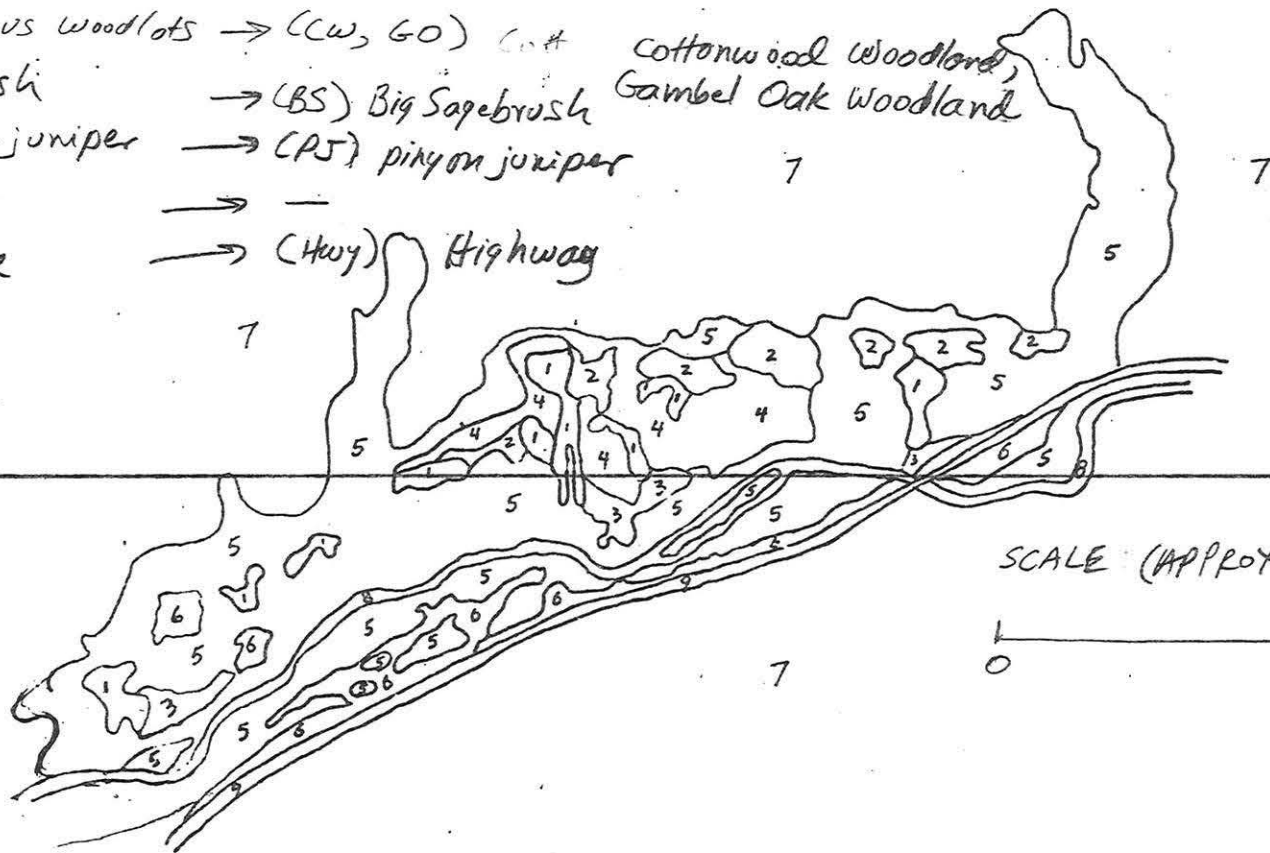 us woodlots → (CW, GO) Cottonwood Woodland,
Gambel Oak Woodland
sh → (BS) Big Sagebrush
juniper → (PJ) pinyon juniper
→ —
→ (Hwy) Highway
7 7
5
7
5 2 2 2 2
1 2 2 5
4 1 1
4 4 5
5 4 2 1 4 1 3 6 5 8
1 3
5 3 5 5 5
5
1
6 1 8 5
5 6 5 6 9
5 6 5
1 3 5 6 7
5 5 6
5
6
9
SCALE (APPROX
0